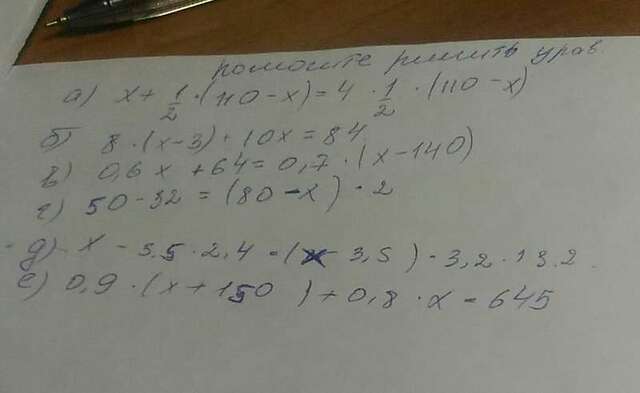 помогите решить урав.
а) x + 1/2 · (110 - x) = 4 · 1/2 · (110 - x)
б) 8 · (x - 3) + 10x = 84
в) 0,6x + 64 = 0,7 · (x - 140)
г) 50 - 32 = (80 - x) · 2
д) x - 3,5 · 2,4 = (x - 3,5) · 3,2 · 13.2
е) 0,9 · (x + 150) + 0,8 · x = 645